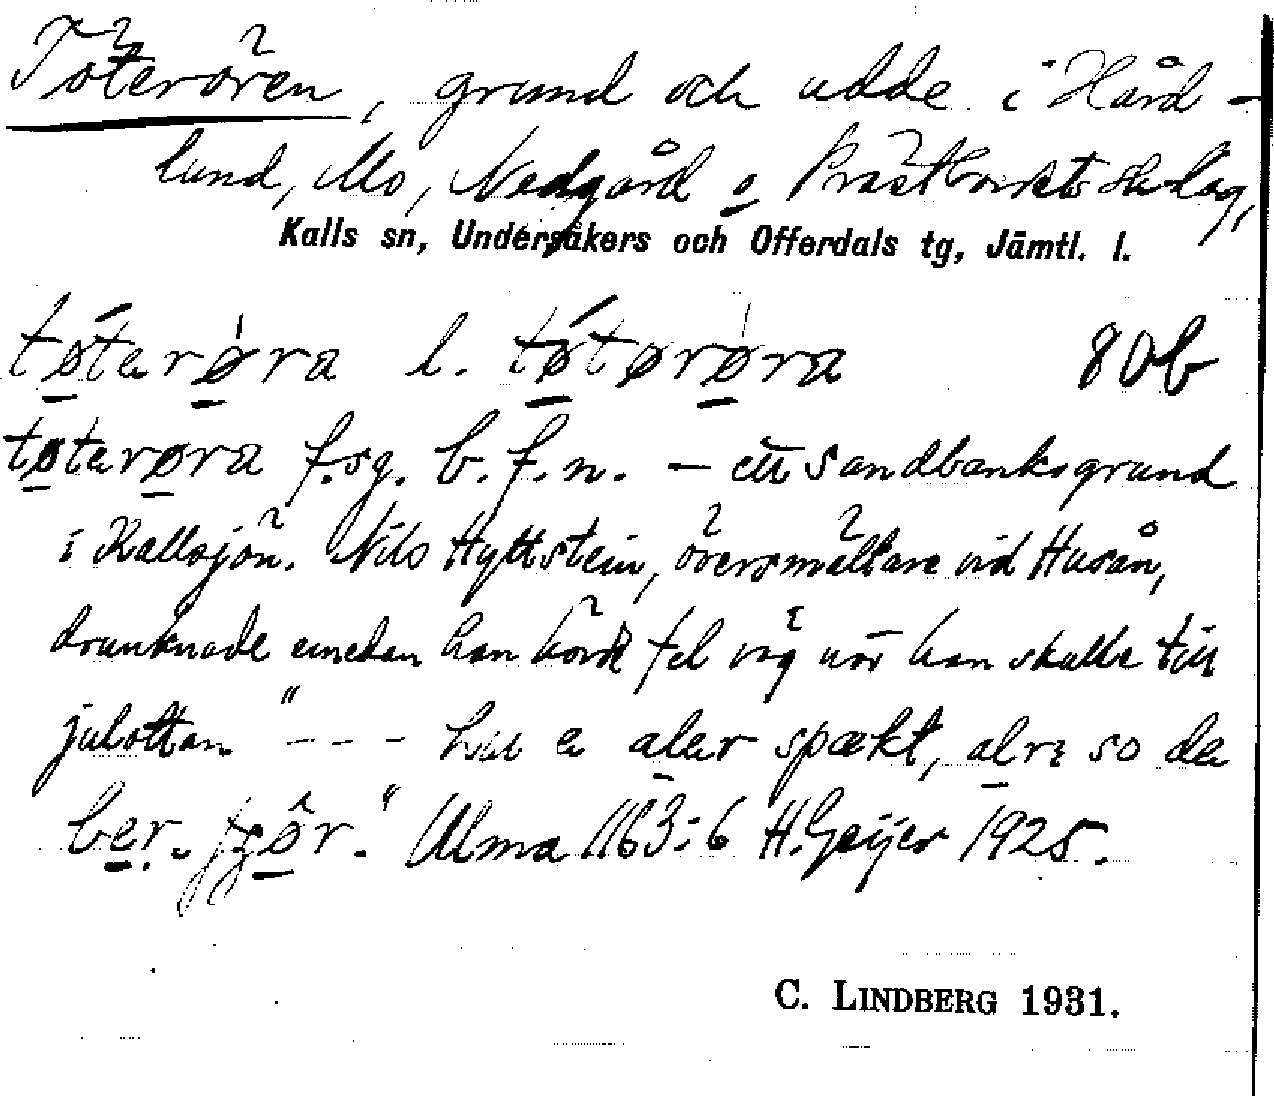 Töterören, grund och udde i Hård-
lund, Mo, Nedgård o Prästbordets skifteslag,
Kalls sn, Undersåkers och Offerdals tg, Jämtl. l.
tǿ̱tarø̱̀ra l. tǿ̱tørø̱̀ra 80b
tø̱tarø̱ra f.sg. b.f.n. – ett sandbanksgrund
i Kallsjön. Nils Hyttstein, översmältare vid Husån,
drunknade emedan han körde fel väg när han skulle till
julottan " - - - hu e aler spækt, alre so de
ber. " Ulma 1163:6 H. Geijer 1925.
C. LINDBERG 1931.